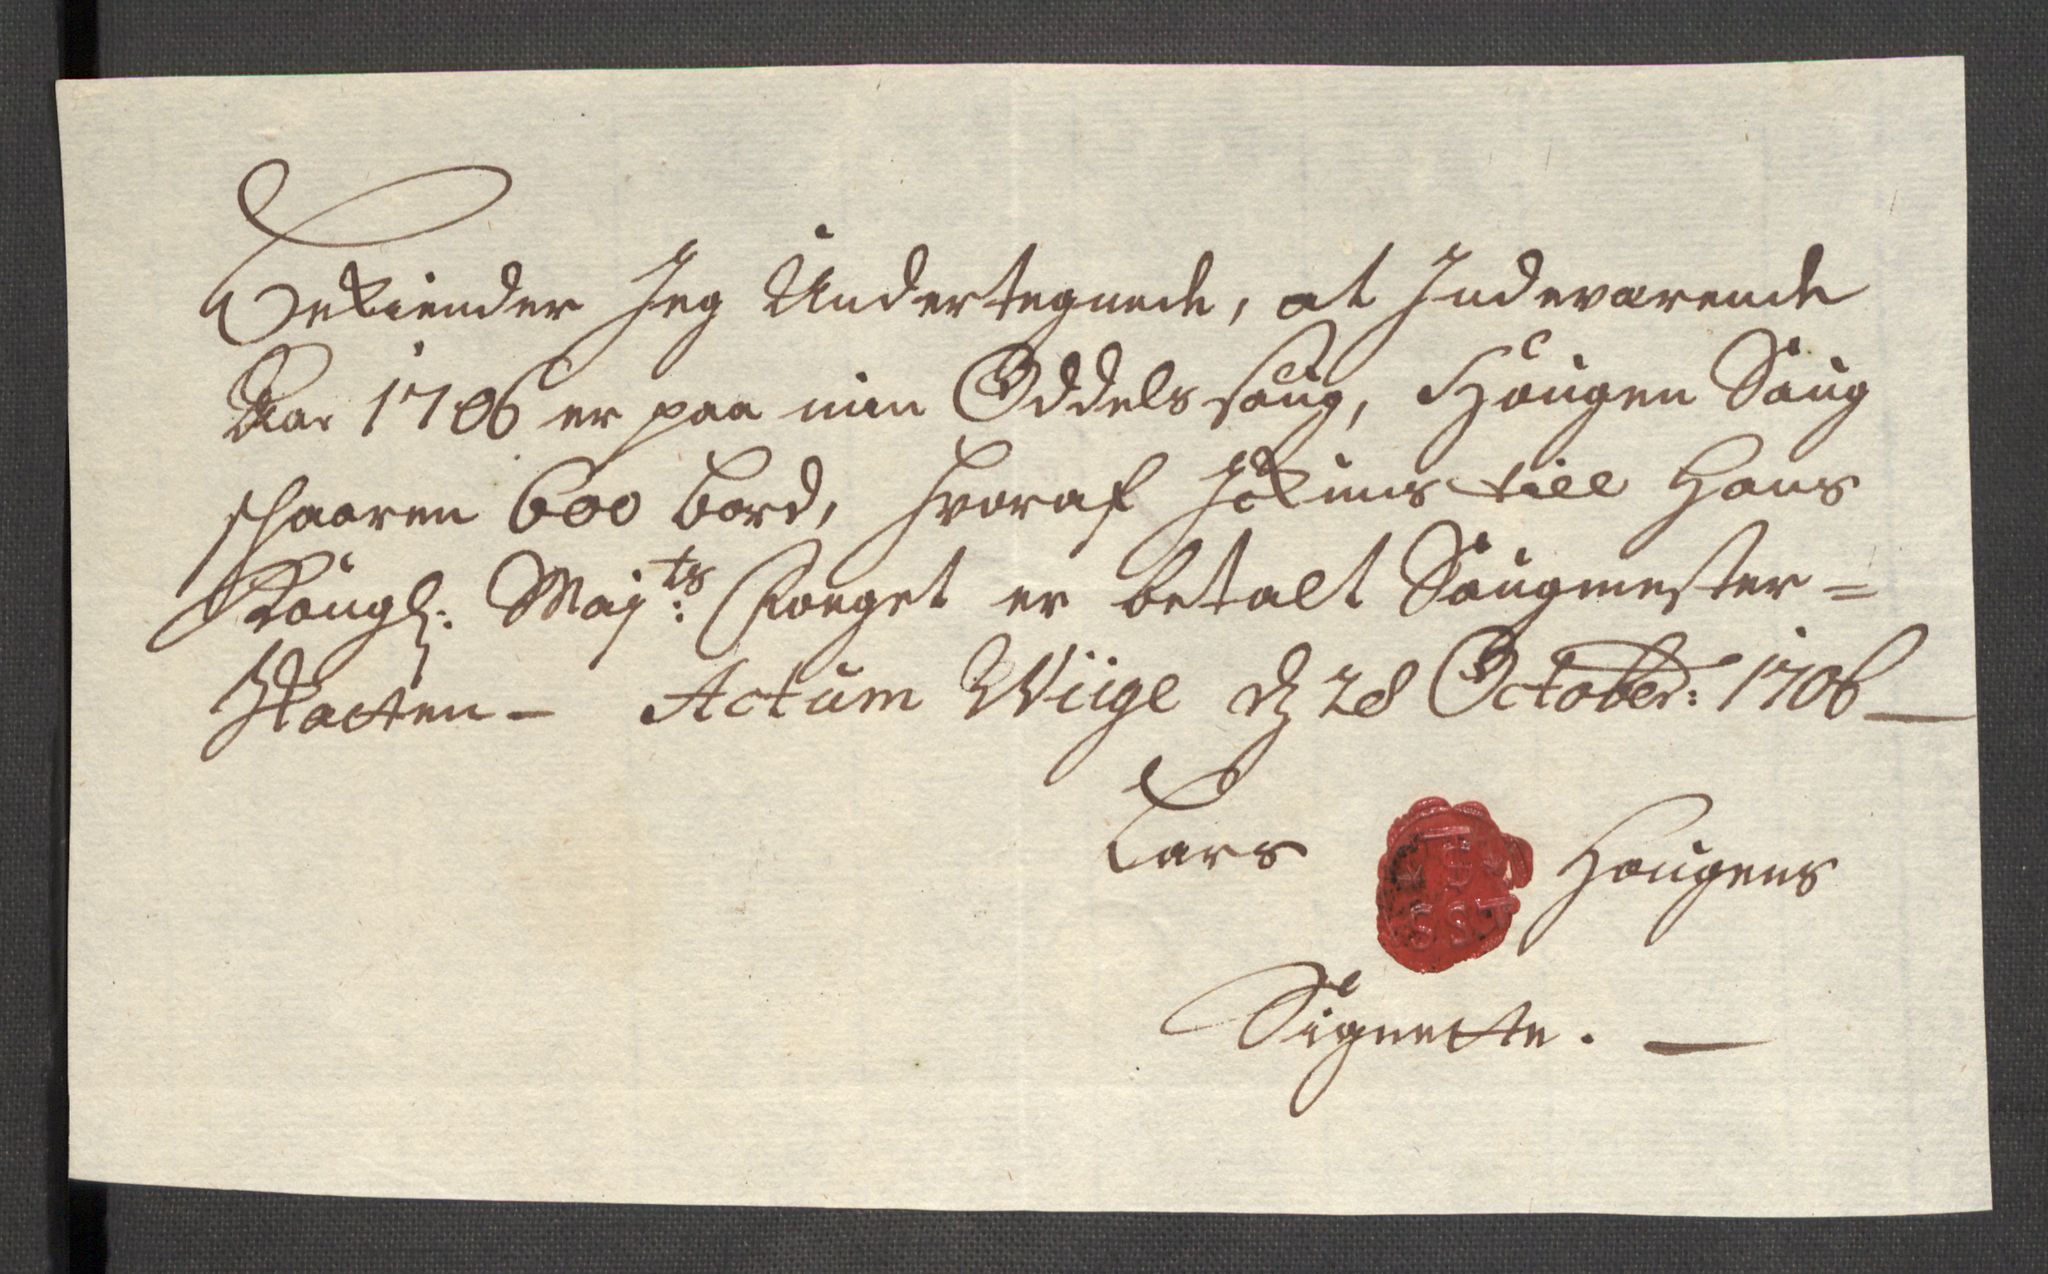 Bekiender Jeg Undertegnede, at Indeværende
Aar 1706 er paa min Oddels saug, Hougen Saug
schaaren 600 bord, hvoraf till Hans
Kongl: Maj:ts er betalt Saugmester=
Skatten - Actum Wiige d 28 October: 1706 -
Lars Hougens
Signette. -